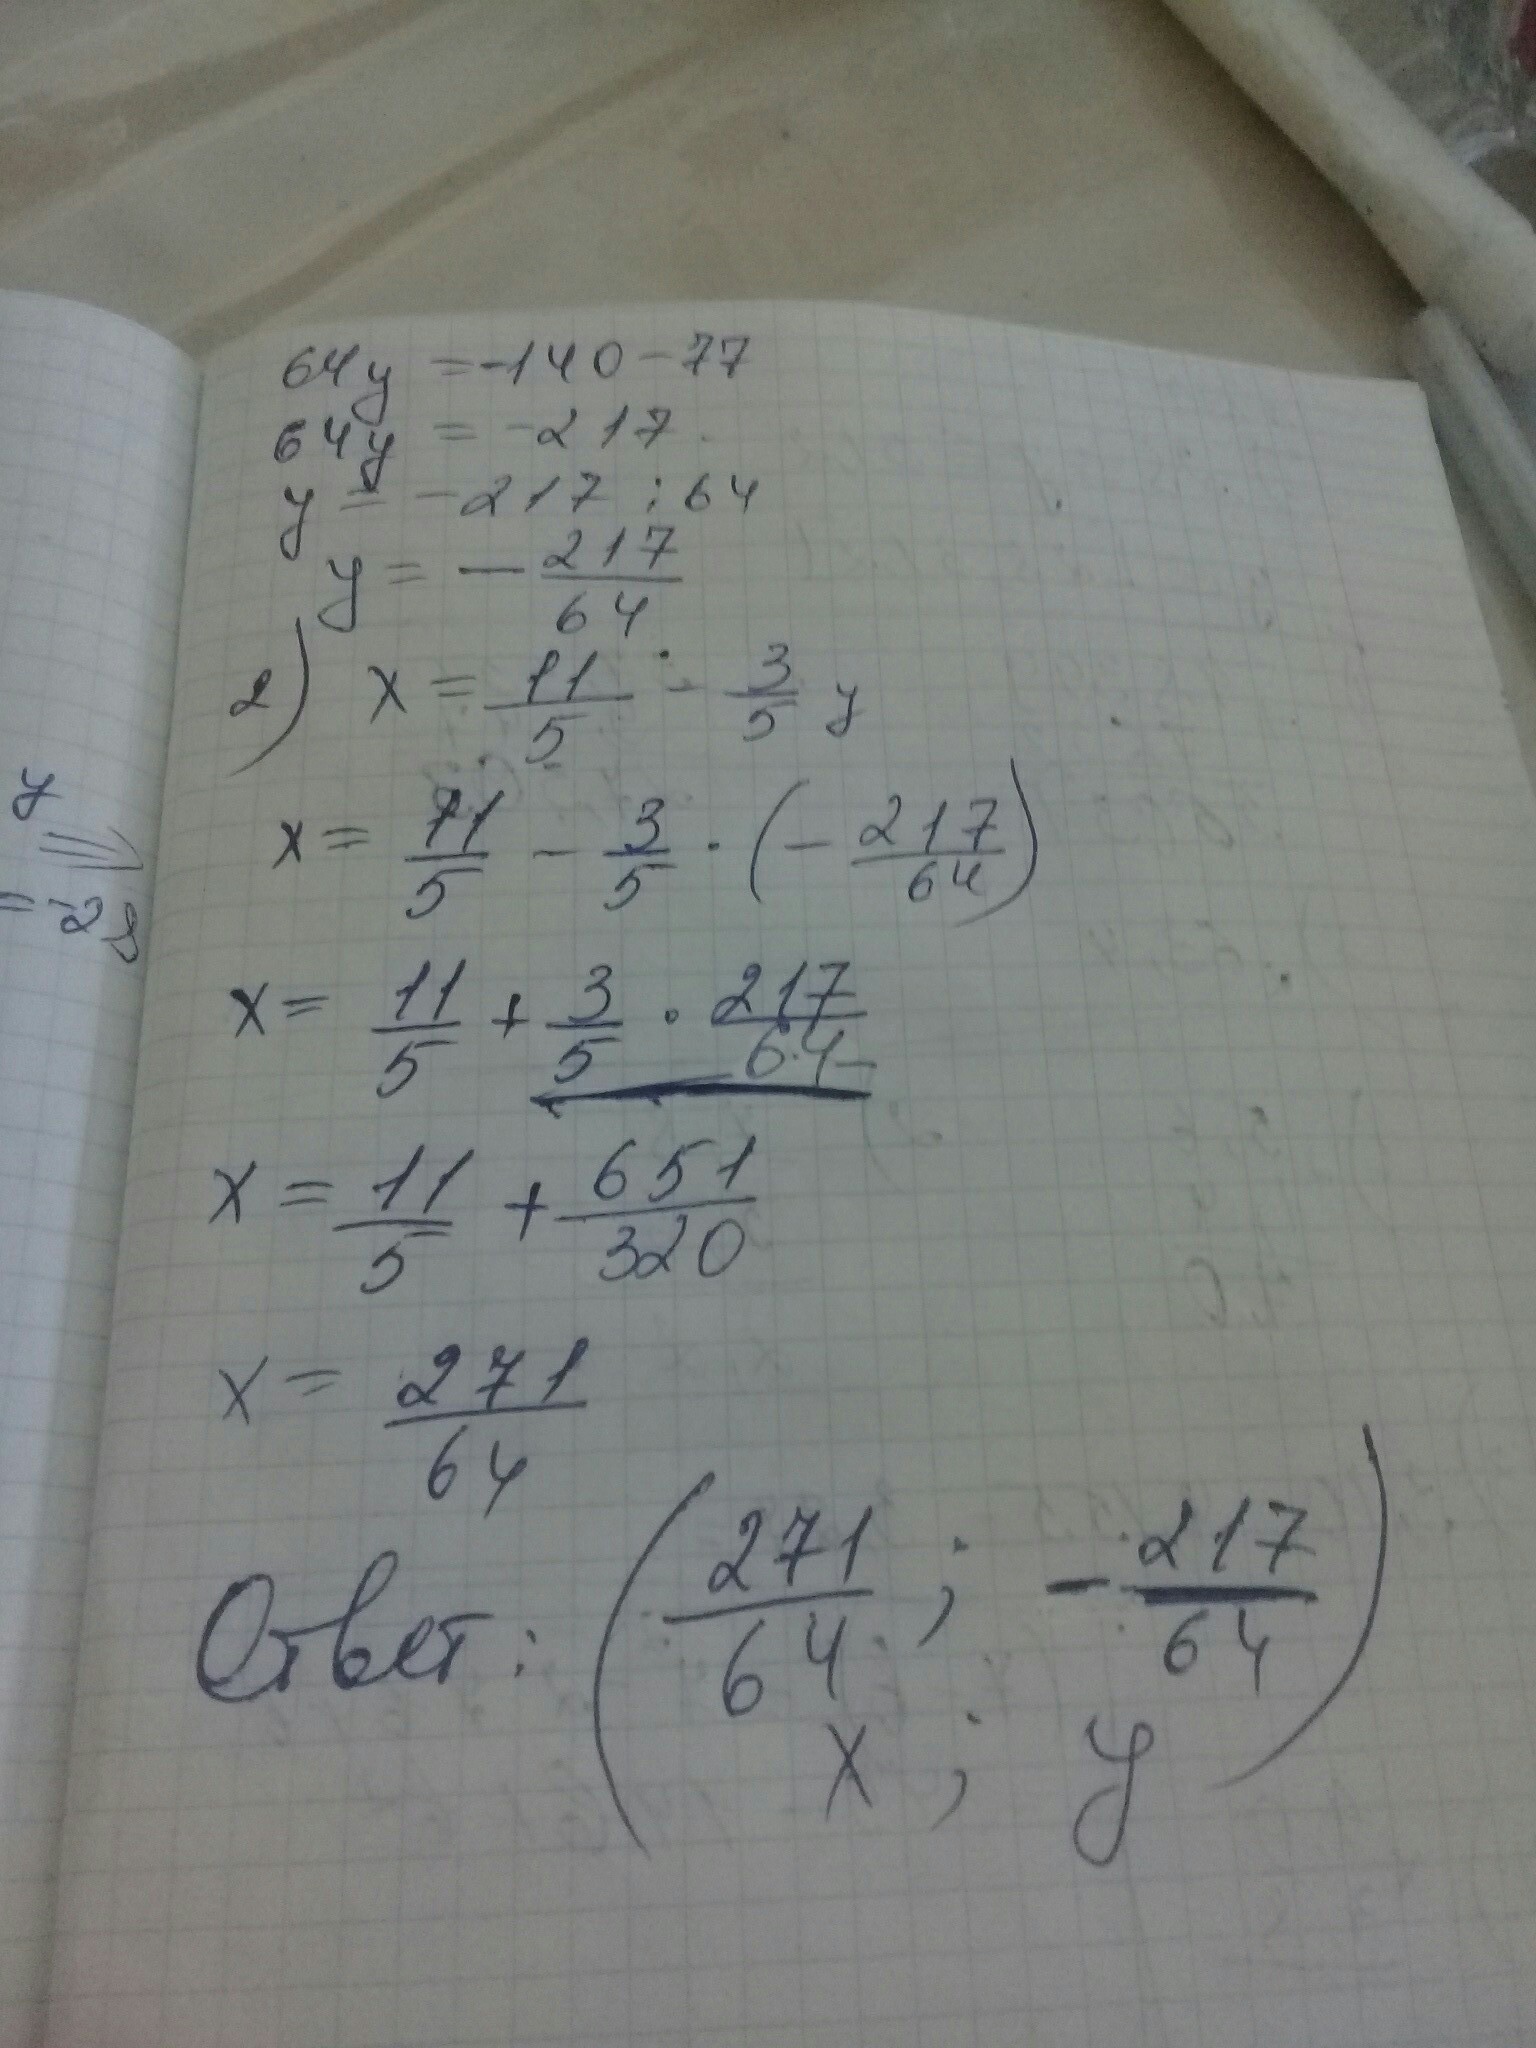 64y = -140 - 77
64y = -217
y = -217 : 64
y = - 217/64
2) x = 11/5 - 3/5 y
x = 11/5 - 3/5 · (- 217/64)
x = 11/5 + 3/5 · 217/64
x = 11/5 + 651/320
x = 271/64
Ответ: (271/64 ; - 217/64)
x ; y
y